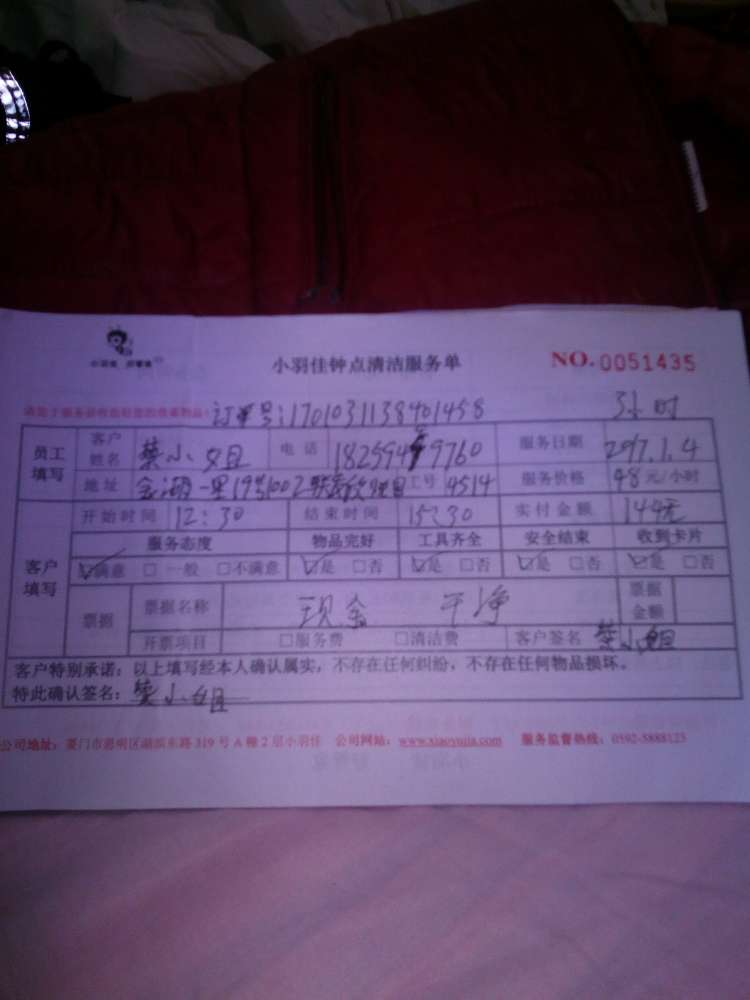 小羽佳 好管家
小羽佳钟点清洁服务单
NO. 0051435
订单号:1701031138401458 3小时
员工填写 客户姓名 蔡小姐 电话 服务日期 2017.1.4
地址 工号 4514 服务价格 48元/小时
客户填写 开始时间 12:30 结束时间 15:30 实付金额 144元
服务态度 物品完好 工具齐全 安全结束 收到卡片
☑满意 □一般 □不满意 ☑是 □否 ☑是 □否 ☑是 □否 ☑是 □否
票据 票据名称 现金 干净 票据金额
开票项目 □服务费 □清洁费 客户签名 蔡小姐
客户特别承诺:以上填写经本人确认属实,不存在任何纠纷,不存在任何物品损坏。
特此确认签名:蔡小姐
公司地址:厦门市思明区湖滨东路 319 号 A 幢 2 层小羽佳 公司网站:www.xiaoyujia.com 服务监督热线:0592-5888123